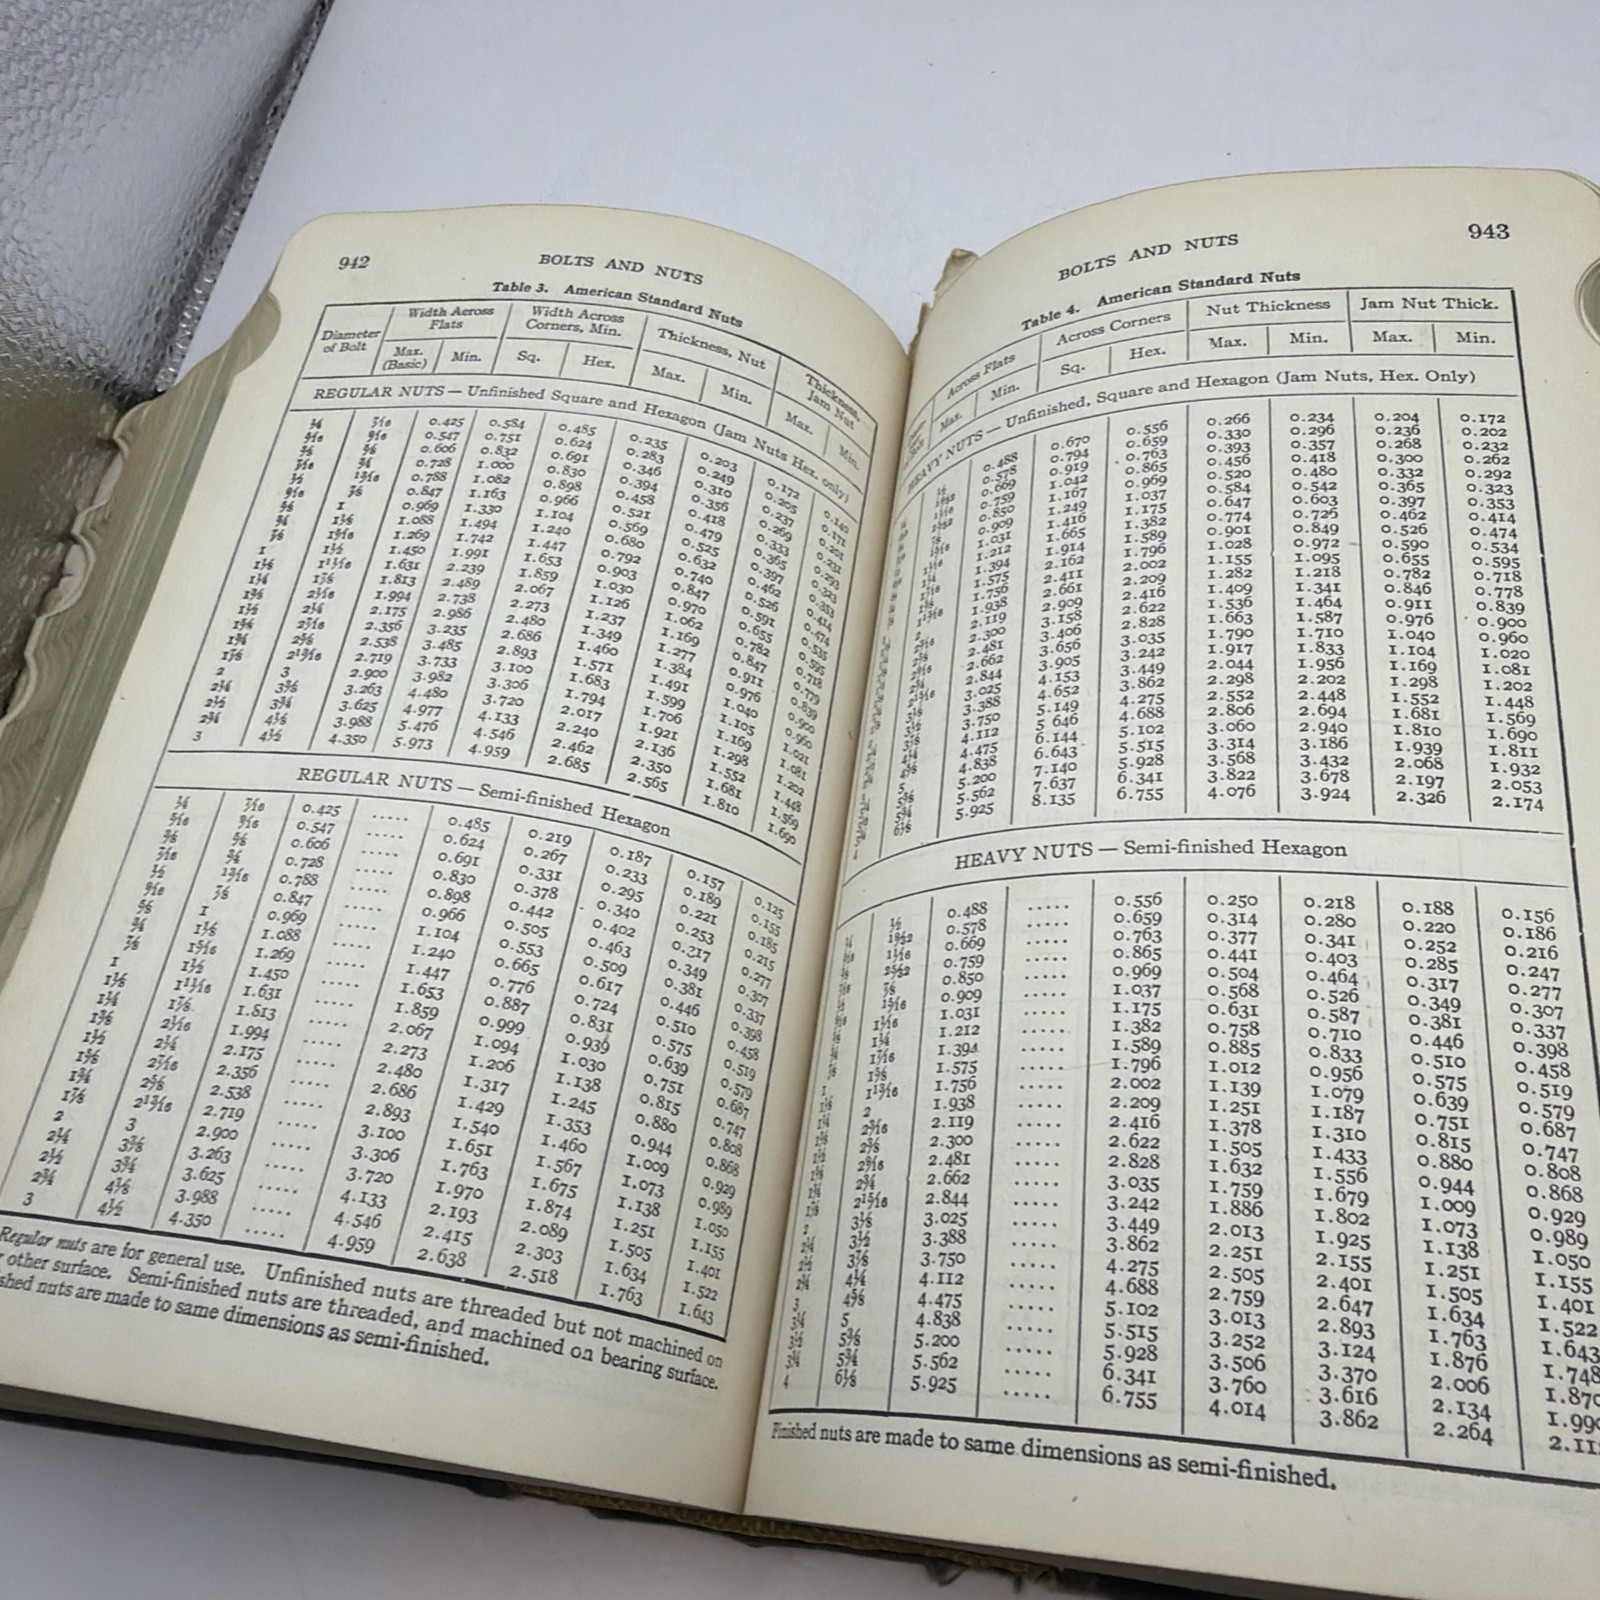 942
BOLTS AND NUTS
Table 3. American Standard Nuts
Diameter of Bolt | Width Across Flats | Width Across Corners, Min. | Thickness, Nut | Thickness, Jam Nut
Max. (Basic) | Min. | Sq. | Hex. | Max. | Min. | Max. | Min.
REGULAR NUTS — Unfinished Square and Hexagon (Jam Nuts Hex. only)
1/4 7/16 0.425 0.584 0.485 0.235 0.203 0.172 0.140
5/16 9/16 0.547 0.751 0.624 0.283 0.249 0.205 0.171
3/8 5/8 0.606 0.832 0.691 0.346 0.310 0.237 0.201
7/16 3/4 0.728 1.000 0.830 0.394 0.356 0.269 0.231
1/2 13/16 0.788 1.082 0.898 0.458 0.418 0.333 0.293
9/16 7/8 0.847 1.163 0.966 0.521 0.479 0.365 0.323
5/8 1 0.969 1.330 1.104 0.569 0.525 0.397 0.353
3/4 1 1/8 1.088 1.494 1.240 0.680 0.632 0.462 0.414
7/8 1 5/16 1.269 1.742 1.447 0.792 0.740 0.526 0.474
1 1 1/2 1.450 1.991 1.653 0.903 0.847 0.591 0.535
1 1/8 1 11/16 1.631 2.239 1.859 1.030 0.970 0.655 0.595
1 1/4 1 7/8 1.813 2.489 2.067 1.126 1.062 0.782 0.718
1 3/8 2 1/16 1.994 2.738 2.273 1.237 1.169 0.847 0.779
1 1/2 2 1/4 2.175 2.986 2.480 1.349 1.277 0.911 0.839
1 5/8 2 7/16 2.356 3.235 2.686 1.460 1.384 0.976 0.900
1 3/4 2 5/8 2.538 3.485 2.893 1.571 1.491 1.040 0.960
1 7/8 2 13/16 2.719 3.733 3.100 1.683 1.599 1.105 1.021
2 3 2.900 3.982 3.306 1.794 1.706 1.169 1.081
2 1/4 3 3/8 3.263 4.480 3.720 2.017 1.921 1.298 1.202
2 1/2 3 3/4 3.625 4.977 4.133 2.240 2.136 1.552 1.448
2 3/4 4 1/8 3.988 5.476 4.546 2.462 2.350 1.681 1.569
3 4 1/2 4.350 5.973 4.959 2.685 2.565 1.810 1.690
REGULAR NUTS — Semi-finished Hexagon
1/4 7/16 0.425 ..... 0.485 0.219 0.187 0.157 0.125
5/16 9/16 0.547 ..... 0.624 0.267 0.233 0.189 0.155
3/8 5/8 0.606 ..... 0.691 0.331 0.295 0.221 0.185
7/16 3/4 0.728 ..... 0.830 0.378 0.340 0.253 0.215
1/2 13/16 0.788 ..... 0.898 0.442 0.402 0.217 0.277
9/16 7/8 0.847 ..... 0.966 0.505 0.463 0.349 0.307
5/8 1 0.969 ..... 1.104 0.553 0.509 0.381 0.337
3/4 1 1/8 1.088 ..... 1.240 0.665 0.617 0.446 0.398
7/8 1 5/16 1.269 ..... 1.447 0.776 0.724 0.510 0.458
1 1 1/2 1.450 ..... 1.653 0.887 0.831 0.575 0.519
1 1/8 1 11/16 1.631 ..... 1.859 0.999 0.939 0.639 0.579
1 1/4 1 7/8 1.813 ..... 2.067 1.094 1.030 0.751 0.687
1 3/8 2 1/16 1.994 ..... 2.273 1.206 1.138 0.815 0.747
1 1/2 2 1/4 2.175 ..... 2.480 1.317 1.245 0.880 0.808
1 5/8 2 7/16 2.356 ..... 2.686 1.429 1.353 0.944 0.868
1 3/4 2 5/8 2.538 ..... 2.893 1.540 1.460 1.009 0.929
1 7/8 2 13/16 2.719 ..... 3.100 1.651 1.567 1.073 0.989
2 3 2.900 ..... 3.306 1.763 1.675 1.138 1.050
2 1/4 3 3/8 3.263 ..... 3.720 1.970 1.874 1.251 1.155
2 1/2 3 3/4 3.625 ..... 4.133 2.193 2.089 1.505 1.401
2 3/4 4 1/8 3.988 ..... 4.546 2.415 2.303 1.634 1.522
3 4 1/2 4.350 ..... 4.959 2.638 2.518 1.763 1.643
Regular nuts are for general use. Unfinished nuts are threaded but not machined on
other surface. Semi-finished nuts are threaded, and machined on bearing surface.
nuts are made to same dimensions as semi-finished.
943
BOLTS AND NUTS
Table 4. American Standard Nuts
Across Flats | Across Corners | Nut Thickness | Jam Nut Thick.
Max. | Min. | Sq. | Hex. | Max. | Min. | Max. | Min.
HEAVY NUTS — Unfinished, Square and Hexagon (Jam Nuts, Hex. Only)
1/2 0.488 0.670 0.556 0.266 0.234 0.204 0.172
19/32 0.578 0.794 0.659 0.330 0.296 0.236 0.202
11/16 0.669 0.919 0.763 0.393 0.357 0.268 0.232
25/32 0.759 1.042 0.865 0.456 0.418 0.300 0.262
7/8 0.850 1.167 0.969 0.520 0.480 0.332 0.292
15/16 0.909 1.249 1.037 0.584 0.542 0.365 0.323
1 1/16 1.031 1.416 1.175 0.647 0.603 0.397 0.353
1 1/4 1.212 1.665 1.382 0.774 0.726 0.462 0.414
1.394 1.914 1.589 0.901 0.849 0.526 0.474
1.575 2.162 1.796 1.028 0.972 0.590 0.534
1.756 2.411 2.002 1.155 1.095 0.655 0.595
1.938 2.661 2.209 1.282 1.218 0.782 0.718
2.119 2.909 2.416 1.409 1.341 0.846 0.778
2.300 3.158 2.622 1.536 1.464 0.911 0.839
2.481 3.406 2.828 1.663 1.587 0.976 0.900
2.662 3.656 3.035 1.790 1.710 1.040 0.960
2.844 3.905 3.242 1.917 1.833 1.104 1.020
3.025 4.153 3.449 2.044 1.956 1.169 1.081
3.388 4.652 3.862 2.298 2.202 1.298 1.202
3.750 5.149 4.275 2.552 2.448 1.552 1.448
4.112 5 646 4.688 2.806 2.694 1.681 1.569
4.475 6.144 5.102 3.060 2.940 1.810 1.690
5 4.838 6.643 5.515 3.314 3.186 1.939 1.811
5 3/8 5.200 7.140 5.928 3.568 3.432 2.068 1.932
5 3/4 5.562 7.637 6.341 3.822 3.678 2.197 2.053
6 1/8 5.925 8.135 6.755 4.076 3.924 2.326 2.174
HEAVY NUTS — Semi-finished Hexagon
1/2 0.488 ..... 0.556 0.250 0.218 0.188 0.156
19/32 0.578 ..... 0.659 0.314 0.280 0.220 0.186
11/16 0.669 ..... 0.763 0.377 0.341 0.252 0.216
25/32 0.759 ..... 0.865 0.441 0.403 0.285 0.247
7/8 0.850 ..... 0.969 0.504 0.464 0.317 0.277
15/16 0.909 ..... 1.037 0.568 0.526 0.349 0.307
1 1/16 1.031 ..... 1.175 0.631 0.587 0.381 0.337
1 1/4 1.212 ..... 1.382 0.758 0.710 0.446 0.398
1 7/16 1.394 ..... 1.589 0.885 0.833 0.510 0.458
1 5/8 1.575 ..... 1.796 1.012 0.956 0.575 0.519
1 13/16 1.756 ..... 2.002 1.139 1.079 0.639 0.579
2 1.938 ..... 2.209 1.251 1.187 0.751 0.687
2 3/16 2.119 ..... 2.416 1.378 1.310 0.815 0.747
2 3/8 2.300 ..... 2.622 1.505 1.433 0.880 0.808
2 9/16 2.481 ..... 2.828 1.632 1.556 0.944 0.868
2 3/4 2.662 ..... 3.035 1.759 1.679 1.009 0.929
2 15/16 2.844 ..... 3.242 1.886 1.802 1.073 0.989
3 1/8 3.025 ..... 3.449 2.013 1.925 1.138 1.050
3 1/2 3.388 ..... 3.862 2.251 2.155 1.251 1.155
3 7/8 3.750 ..... 4.275 2.505 2.401 1.505 1.401
4 1/4 4.112 ..... 4.688 2.759 2.647 1.634 1.522
4 5/8 4.475 ..... 5.102 3.013 2.893 1.763 1.643
5 4.838 ..... 5.515 3.252 3.124 1.876 1.748
5 3/8 5.200 ..... 5.928 3.506 3.370 2.006 1.870
5 3/4 5.562 ..... 6.341 3.760 3.616 2.134
4 6 1/8 5.925 ..... 6.755 4.014 3.862 2.264
Finished nuts are made to same dimensions as semi-finished.